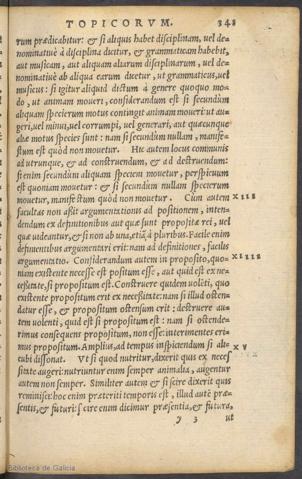 TOPICORVM. 348
rum prædicabitur: & si aliquis habet disciplinam, uel de-
nominatiuè à disciplina ducitur, & grammaticam habebit,
aut musicam, aut aliquam aliarum disciplinarum, uel de-
nominatiuè ab aliqua earum ducetur, ut grammaticus, uel
musicus: si igitur aliquid dictum à genere quoquo mo-
do, ut animam moueri, considerandum est si secundùm
aliquam specierum motus contingit animam moueri: ut au-
geri, uel minui, uel corrumpi, uel generari, aut quæcunque
aliæ motus species sunt: nam si secundùm nullam, manife-
stum est quòd non mouetur. Hic autem locus communis
ad utrunque, & ad construendum, & ad destruendum:
si enim secundùm aliquam speciem mouetur, perspicuum
est quoniam mouetur: & si secundùm nullam specierum
mouetur, manifestum quòd non mouetur. Cùm autem XIII
facultas non adsit argumentationis ad positionem, inten-
dendum ex definitionibus aut quæ sunt propositæ rei, uel
quæ uideantur, & si non ab una, etiã à pluribus. Facile enim
definientibus argumentari erit: nam ad definitiones, facilis
argumentatio. Considerandum autem in proposito, quo- XIIII
nam existente necesse est positum esse, aut quid est ex ne-
cessitate, si propositum est. Construere quidem uolēti, quo
existente propositum erit ex necessitate: nam si illud osten-
datur esse, & propositum ostensum erit: destruere au-
tem uolenti, quid est si propositum est: nam si ostende-
rimus consequens proposito, non esse: interimentes eri-
mus propositum. Amplius, ad tempus inspiciendum si ali- XV
cubi dissonat. Vt si quod nutritur, dixerit quis ex neces
sitate augeri: nutriuntur enim semper animalia, augentur
autem non semper. Similiter autem & si scire dixerit quis
reminisci: hoc enim præteriti temporis est, illud autē præ-
sentis, & futuri: scire enim dicimur præsentia, & futura,
y 3 ut
Biblioteca de Galicia